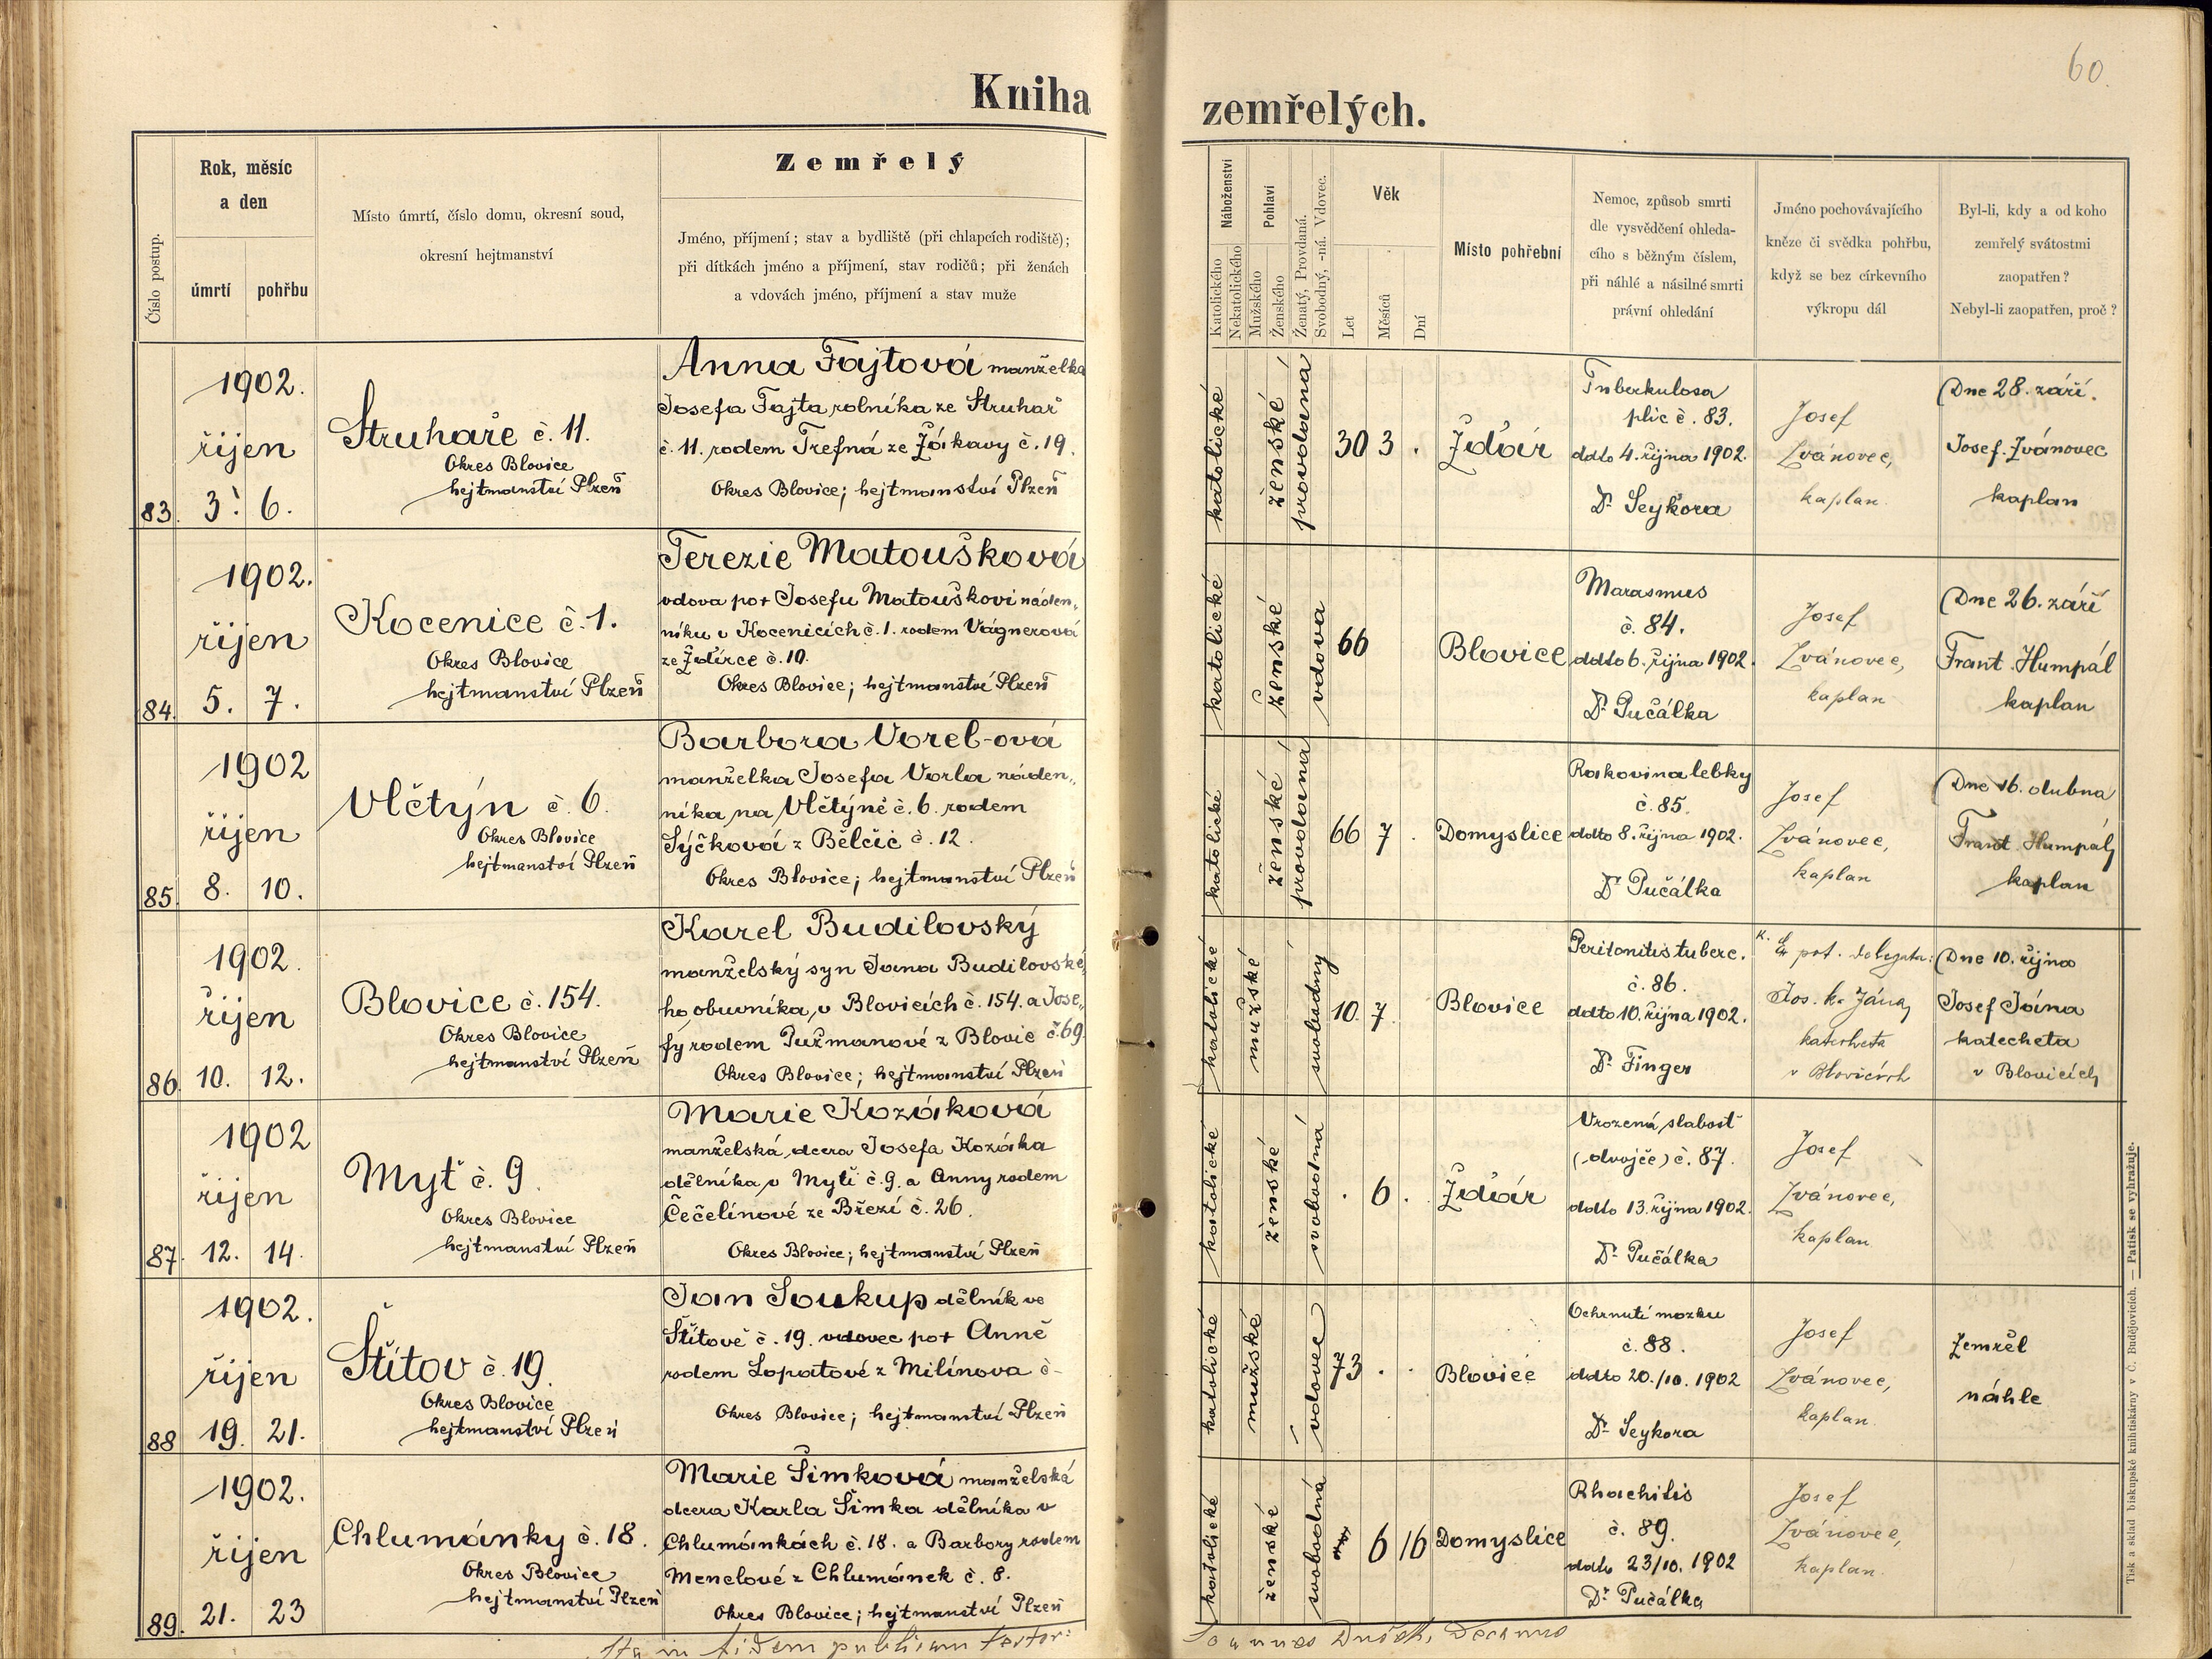 60.
Kniha zemřelých.
Číslo postup.
Rok, měsíc
a den
úmrtí
pohřbu
Místo úmrtí, číslo domu, okresní soud,
okresní hejtmanství
Zemřelý
Jméno, příjmení; stav a bydliště (při chlapcích rodiště);
při dítkách jméno a příjmení, stav rodičů; při ženách
a vdovách jméno, příjmení a stav muže
Náboženství
Katolického
Nekatolického
Pohlaví
Mužského
Ženského
Ženatý, Provdaná.
Svobodný, -ná. Vdovec.
Věk
Let
Měsíců
Dní
Místo pohřební
Nemoc, způsob smrti
dle vysvědčení ohleda-
cího s běžným číslem,
při náhlé a násilné smrti
právní ohledání
Jméno pochovávajícího
kněze či svědka pohřbu,
když se bez církevního
výkropu dál
Byl-li, kdy a od koho
zemřelý svátostmi
zaopatřen?
Nebyl-li zaopatřen, proč?
83.
1902.
říjen
3. 6.
Struhaře č. 11.
Okres Blovice
hejtmanství Plzeň
Anna Fajtová manželka
Josefa Fajta rolníka ze Struhař
č. 11. rodem Trefná ze Žďákavy č. 19.
Okres Blovice; hejtmanství Plzeň
katolické
ženské
provdaná
30 3 .
Ždár
Tuberkulosa
plic č. 83.
ddto 4. října 1902.
Dr Seykora
Josef
Zvánovec,
kaplan.
Dne 28. září.
Josef Zvánovec
kaplan
84.
1902.
říjen
5. 7.
Kocenice č. 1.
Okres Blovice
hejtmanství Plzeň
Terezie Matoušková
vdova po + Josefu Matouškovi náden„
níku v Kocenicích č. 1. rodem Vágnerová
ze Ždírce č. 10.
Okres Blovice; hejtmanství Plzeň
katolické
ženské
vdova
66
Blovice
Marasmus
č. 84.
ddto 6. října 1902.
Dr Pučálka
Josef
Zvánovec,
kaplan
Dne 26. září
Frant. Humpál
kaplan
85.
1902
říjen
8. 10.
Vlčtýn č. 6.
Okres Blovice
hejtmanství Plzeň
Barbora Vorel-ová
manželka Josefa Vorla náden„
níka na Vlčtýně č. 6. rodem
Sýčková z Bělčic č. 12.
Okres Blovice; hejtmanství Plzeň
katolické
ženské
provdaná
66 7 .
Domyslice
Rakovina lebky
č. 85.
ddto 8. října 1902.
Dr Pučálka
Josef
Zvánovec,
kaplan
Dne 16. dubna
Frant. Humpál
kaplan
86.
1902.
říjen
10. 12.
Blovice č. 154.
Okres Blovice
hejtmanství Plzeň
Karel Budilovský
manželský syn Jana Budilovské„
ho, obuvníka v Blovicích č. 154. a Jose„
fy rodem Pužmanové z Blovic č. 69.
Okres Blovice; hejtmanství Plzeň
katolické
mužské
svobodný
10. 7.
Blovice
Peritonitis tuberc.
č. 86.
ddto 10. října 1902.
Dr Finger
pot. delegata:
Jos. Jána,
katecheta
v Blovicích
Dne 10. října
Josef Jána
katecheta
v Blovicích
87.
1902
říjen
12. 14.
Myť č. 9.
Okres Blovice
hejtmanství Plzeň
Marie Kozáková
manželská dcera Josefa Kozáka
dělníka v Myti č. 9. a Anny rodem
Čečelínové ze Březí č. 26.
Okres Blovice; hejtmanství Plzeň
katolické
ženské
svobodná
. 6 .
Ždár
Vrozená slabosť
(dvojče) č. 87.
ddto 13. října 1902.
Dr Pučálka
Josef
Zvánovec,
kaplan
88
1902.
říjen
19. 21.
Štítov č. 19.
Okres Blovice
hejtmanství Plzeň
Jan Soukup dělník ve
Štítově č. 19. vdovec po + Anně
rodem Lopatové z Milínova č-
Okres Blovice; hejtmanství Plzeň
katolické
mužské
vdovec
73 . .
Blovice
Ochrnutí mozku
č. 88.
ddto 20./10. 1902
Dr Seykora
Josef
Zvánovec,
kaplan.
Zemřel
náhle
89.
1902.
říjen
21. 23
Chlumánky č. 18.
Okres Blovice
hejtmanství Plzeň
Marie Šimková manželská
dcera Karla Šimka dělníka v
Chlumánkách č. 18. a Barbory rodem
Menelové z Chlumánek č. 8.
Okres Blovice; hejtmanství Plzeň
katolické
ženské
svobodná
6 16
Domyslice
Rhachitis
č. 89.
ddto 23/10. 1902
Dr Pučálka
Josef
Zvánovec,
kaplan.
Ita in fidem publicam testor: Joannes Dušek, Decanus
Tisk a sklad biskupské knihtiskárny v Č. Budějovicích. — Patisk se vyhražuje.